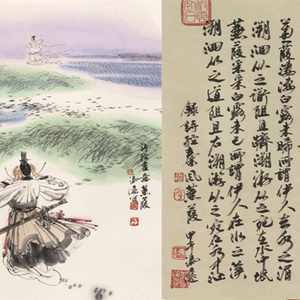 蒹葭萋萋白露未晞所謂伊人在水之湄
溯洄从之道阻且躋溯游从之宛在水中坻
蒹葭采采白露未已所謂伊人在水之涘
溯洄从之道阻且右溯游从之宛在水中
錄詩經秦風蒹葭 甲午
詩經畫意蒹葭